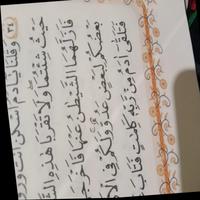 ﴿٣٤﴾ وَقُلْنَا يَٰٓـَٔادَمُ ٱسْكُنْ أَنتَ
حَيْثُ شِئْتُمَا وَلَا تَقْرَبَا هَٰذِهِ
فَأَزَلَّهُمَا ٱلشَّيْطَٰنُ عَنْهَا
بَعْضُكُمْ لِبَعْضٍ عَدُوٌّ وَلَكُمْ فِى
فَتَلَقَّىٰٓ ءَادَمُ مِن رَّبِّهِۦ كَلِمَٰتٍ فَتَابَ